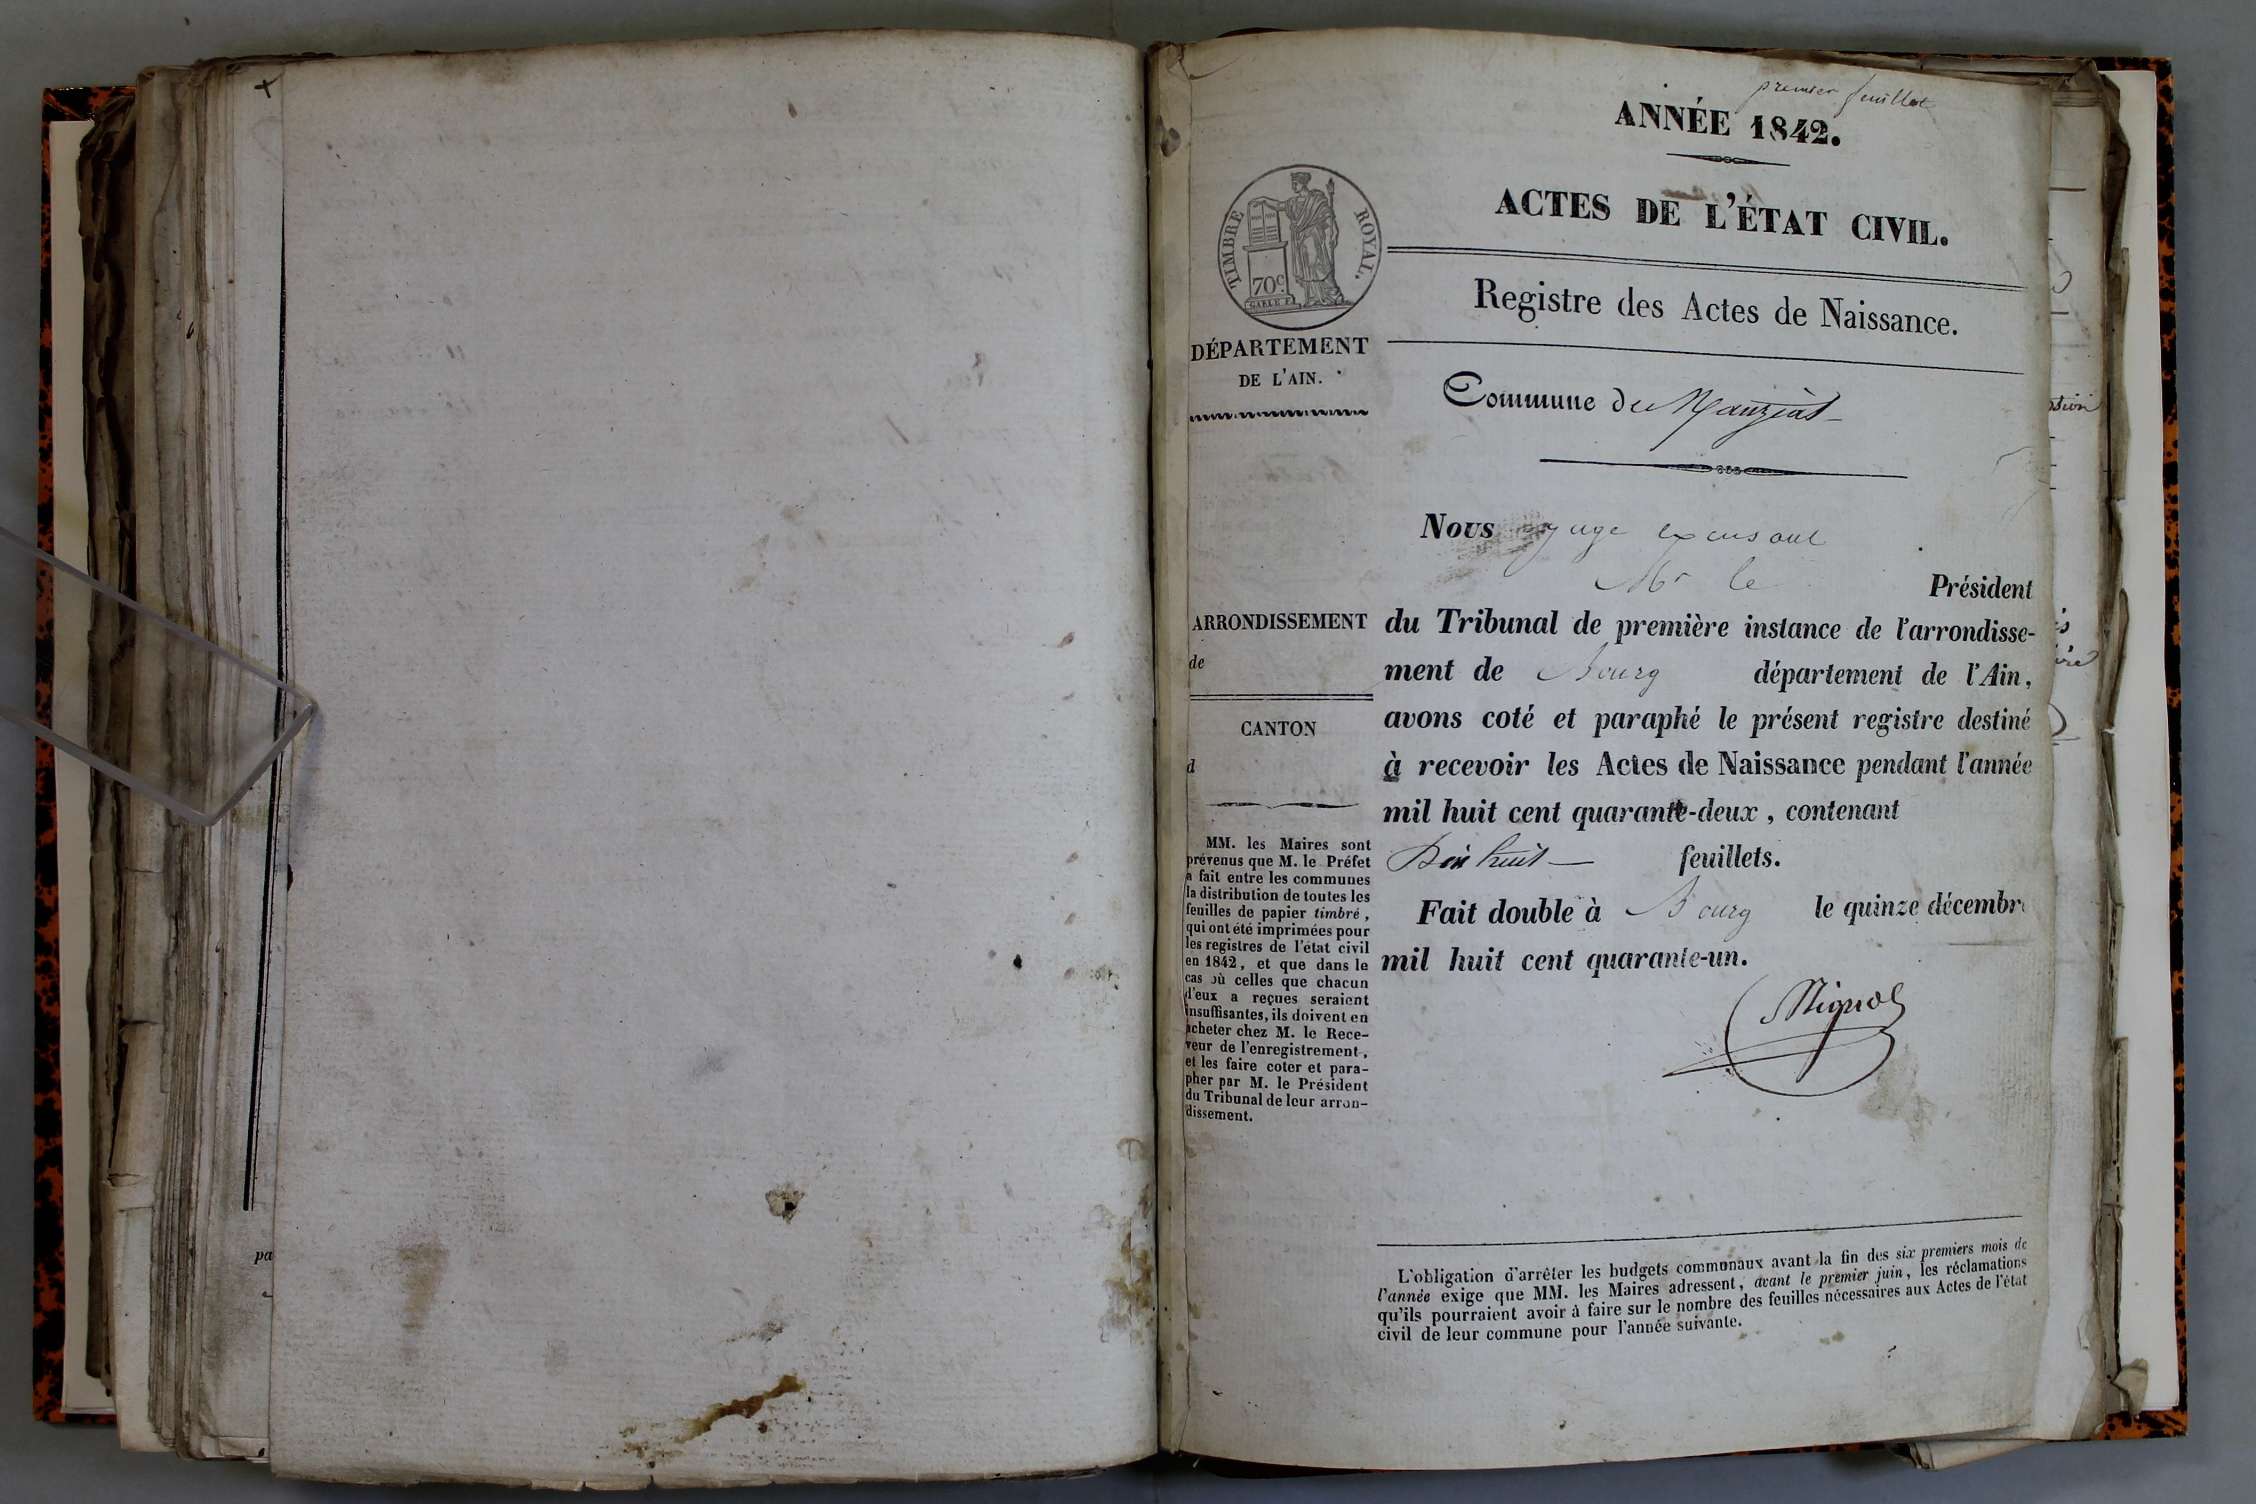 pa
premier feuillet
ANNÉE 1842.
ACTES DE L'ÉTAT CIVIL.
TIMBRE ROYAL.
70c.
Registre des Actes de Naissance.
DÉPARTEMENT
DE L'AIN.
Commune de Manziat
Nous juge
Mr le Président
ARRONDISSEMENT
de
CANTON
d
du Tribunal de première instance de l'arrondisse-
ment de Bourg département de l'Ain,
avons coté et paraphé le présent registre destiné
à recevoir les Actes de Naissance pendant l'année
mil huit cent quarante-deux, contenant
Dix huit feuillets.
Fait double à Bourg le quinze décembre
mil huit cent quarante-un.
MM. les Maires sont
prévenus que M. le Préfet
a fait entre les communes
la distribution de toutes les
feuilles de papier timbré,
qui ont été imprimées pour
les registres de l'état civil
en 1842, et que dans le
cas où celles que chacun
d'eux a reçues seraient
insuffisantes, ils doivent en
acheter chez M. le Rece-
veur de l'enregistrement,
et les faire coter et para-
pher par M. le Président
du Tribunal de leur arron-
dissement.
L'obligation d'arrêter les budgets communaux avant la fin des six premiers mois de
l'année exige que MM. les Maires adressent, avant le premier juin, les réclamations
qu'ils pourraient avoir à faire sur le nombre des feuilles nécessaires aux Actes de l'état
civil de leur commune pour l'année suivante.